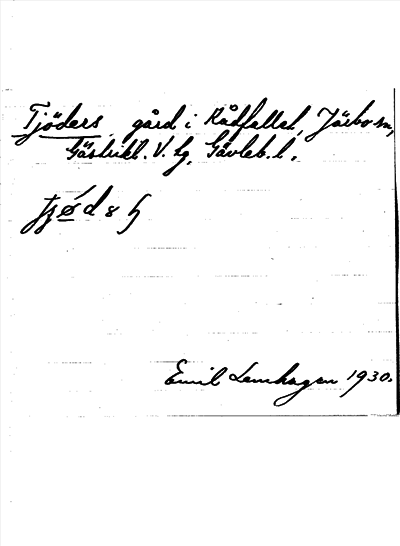 Tjöders, gård i Rådfallet, Järbo sn,
Gästrikl. V. tg, Gävleb. l.
Emil Lemhagen 1930.